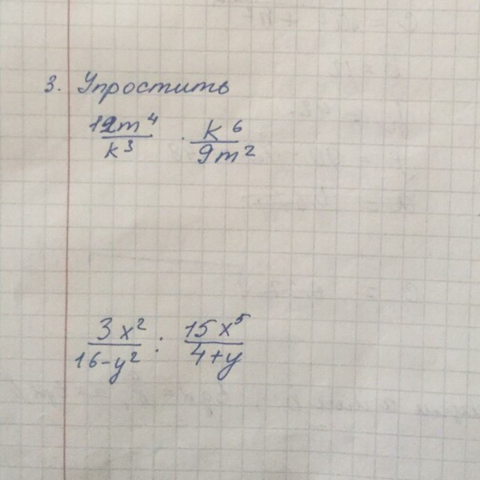 3. Упростить
12m⁴/k³ · k⁶/9m²
3x²/16-y² : 15x⁵/4+y